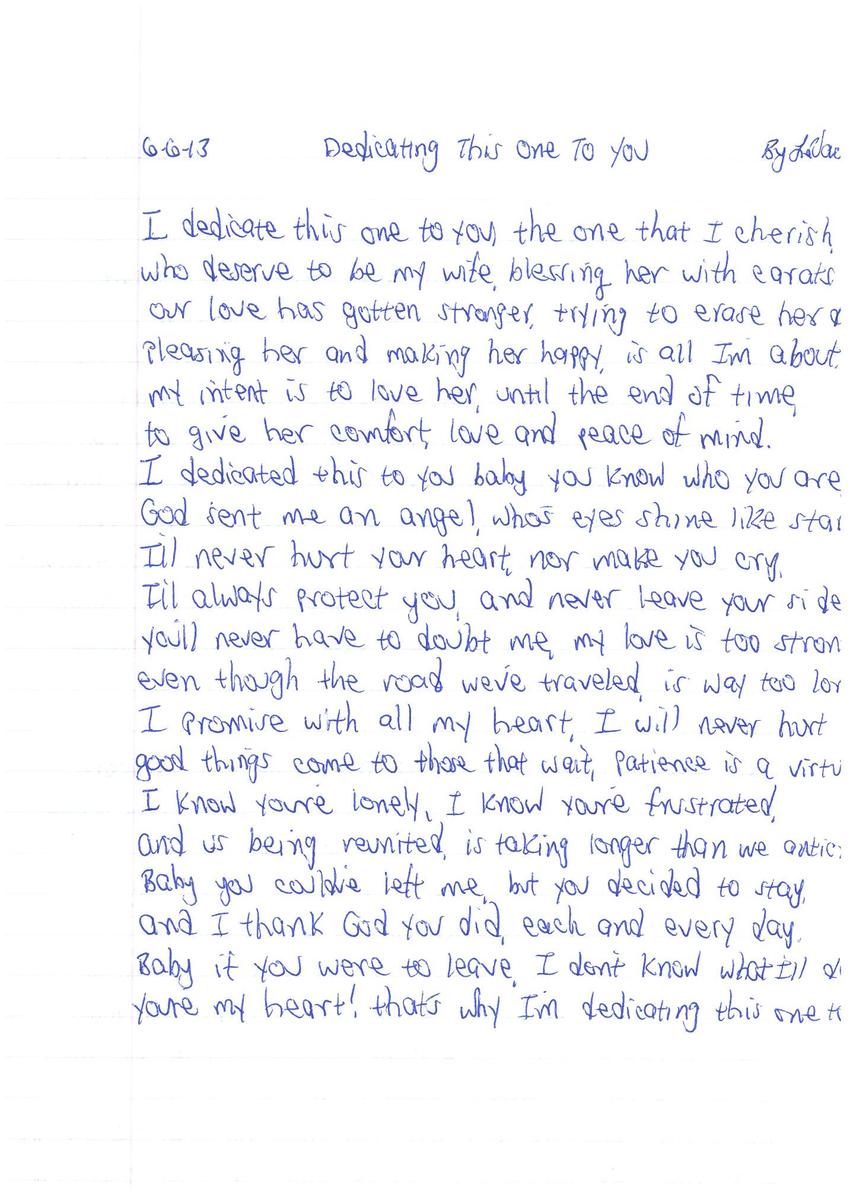 6-6-13 Dedicating This One To You By
I dedicate this one to you, the one that I cherish,
who deserve to be my wife, blessing her with carats
our love has gotten stronger, trying to erase her
Pleasing her and making her happy, is all I'm about.
my intent is to love her, until the end of time,
to give her comfort, love and peace of mind.
I dedicated this to you baby you know who you are
God sent me an angel, who's eyes shine like
I'll never hurt your heart, nor make you cry,
I'll always protect you, and never leave your side
you'll never have to doubt me, my love is too
even though the road we've traveled, is way too
I promise with all my heart, I will never hurt
good things come to those that wait, Patience is a
I know you're lonely, I know you're frustrated,
and us being reunited, is taking longer than we
Baby you could've left me, but you decided to stay,
and I thank God you did, each and every day.
Baby if you were to leave, I don't know what I'll
you're my heart! that's why I'm dedicating this one